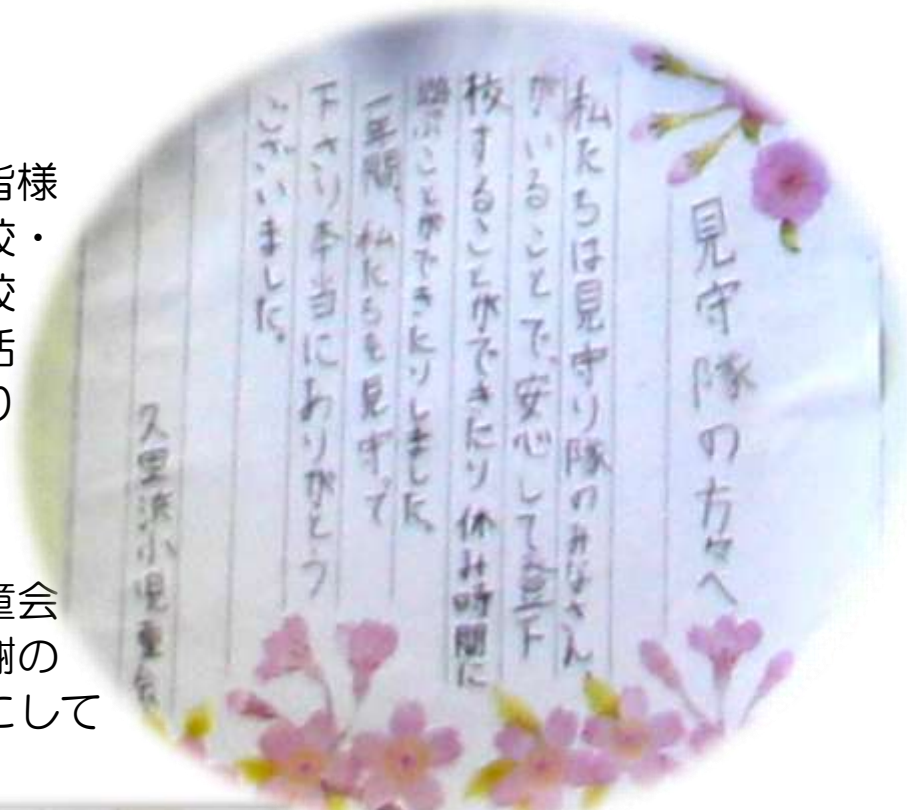 皆様
校・
校
活
り
童会
謝の
にして
見守隊の方々へ
私たちは見守り隊のみなさん
がいることで、安心して登下
校することができたり休み時間に
遊ぶことができたりしました。
一年間、私たちを見守って
下さり本当にありがとう
ございました。
久里浜小児童会